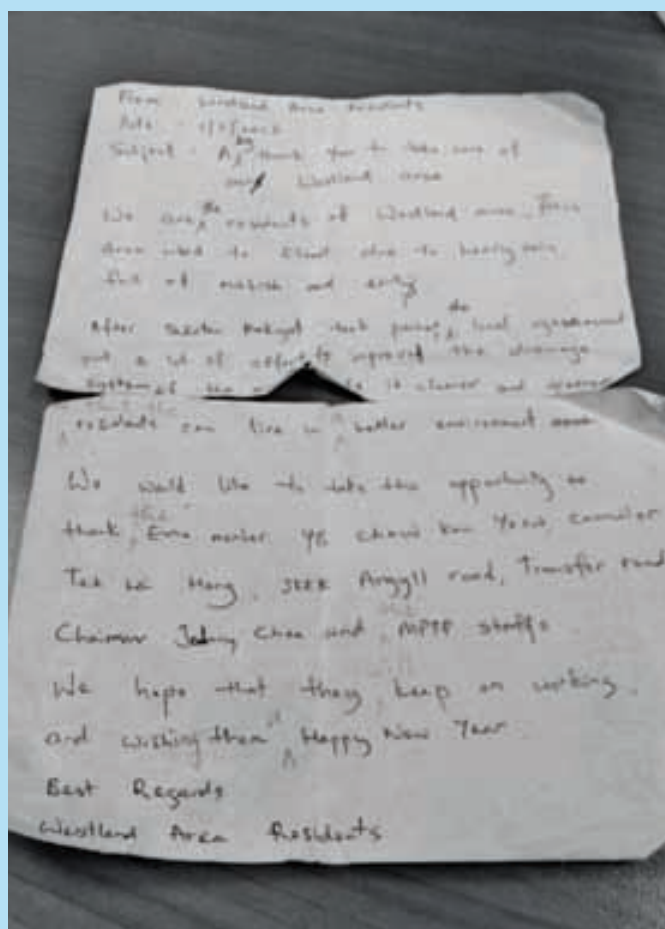 From Westland Area Residents
Date
Subject : A big thank you to take care of
our Westland area
We are the residents of Westland area. This
area used to flood due to heavy rain,
full of rubbish and
After took power, the local government
put a lot of effort to improve the drainage
system of the it cleaner and
residents can live in better environment
We would like to take this opportunity to
thank YB Chow Kon Yeow, Councilor
Tan Hang, JKKK Argyll road, Transfer road
Chairman Chee and MPPP staffs
We hope that they keep on working
and wishing them Happy New Year
Best Regards
Westland Area Residents